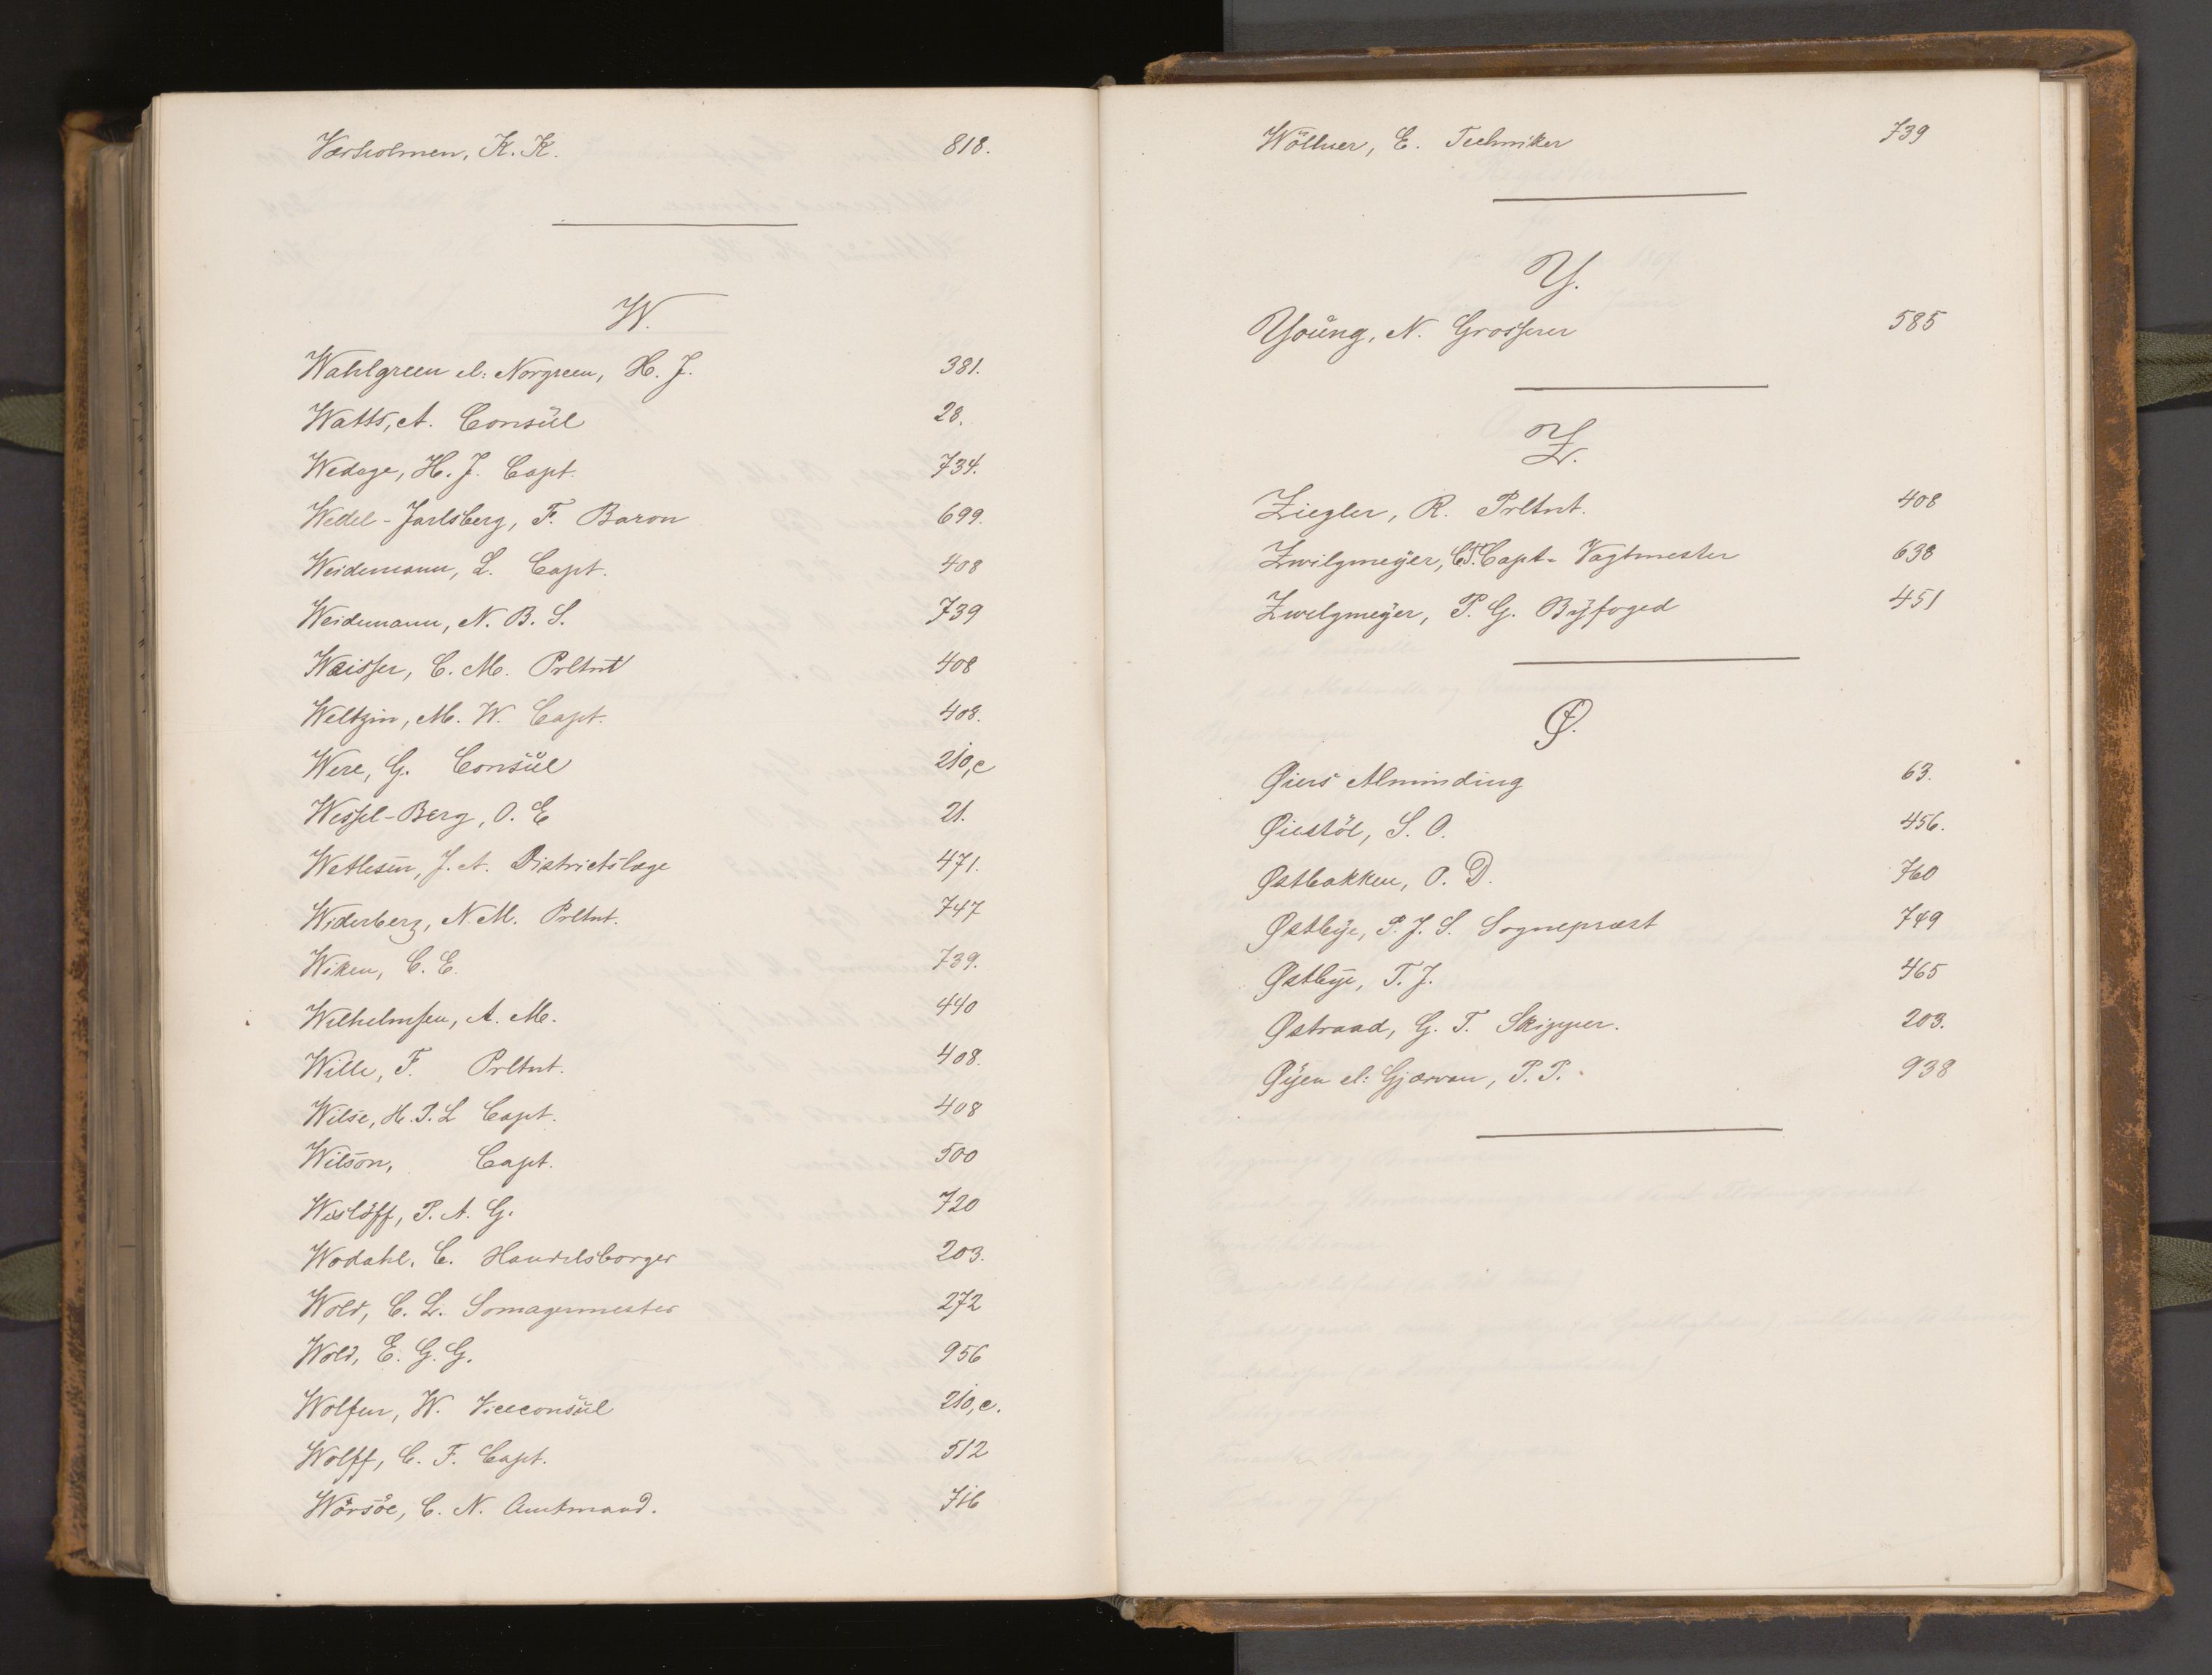 Værholmen, K. K. 818.
W.
Wahlgreen el: Norgreen, H. J. 381.
Watts, A. Consŭl 28.
Wedege, H. J. Capt. 734.
Wedel-Jarlsberg, F. Baron 699.
Weidemann, L. Capt. 408
Weidemann, N. B. S. 739
Weisser, C. M. Prltnt 408
Weltzin, M. W. Capt. 408.
Were, G. Consŭl 210,c
Wessel-Berg, O. E 21.
Wetlesen, J. A. Districtslæge 471.
Widerberg, N. M. Prltnt. 747
Wiken, C. E. 739.
Wilhelmsen, A. M. 440
Wille, F. Prltnt. 408.
Wilse, H. P. L Capt. 408
Wilson, Capt. 500
Wisløff, P. A. G. 720
Wodahl, C. Handelsborger 203.
Wold, C. L. Somagermester 272
Wold, E. G. G. 956
Wolfen, W. Viceconsŭl 210,c.
Wolff, C. F. Capt. 512
Worsöe, C. N. Amtmand. 716
Wöllner, E. Techniker 739
Y.
Yoŭng, N. Grosserer 585
Z.
Ziegler, R. Prltnt. 408
Zwilgmeyer, C. T. Capt. Vagtmester 638
Zwilgmeyer, P. G. Byfoged 451
Ø.
Øiers Alminding 63.
Øiestöl, S. O. 456.
Østbakken, O. D. 760
Østbye, P. J. S. Sognepræst 749
Østbye, T. J. 465
Østraad, G. T. Skipper. 203.
Øyen el: Gjærvan, P. P. 938